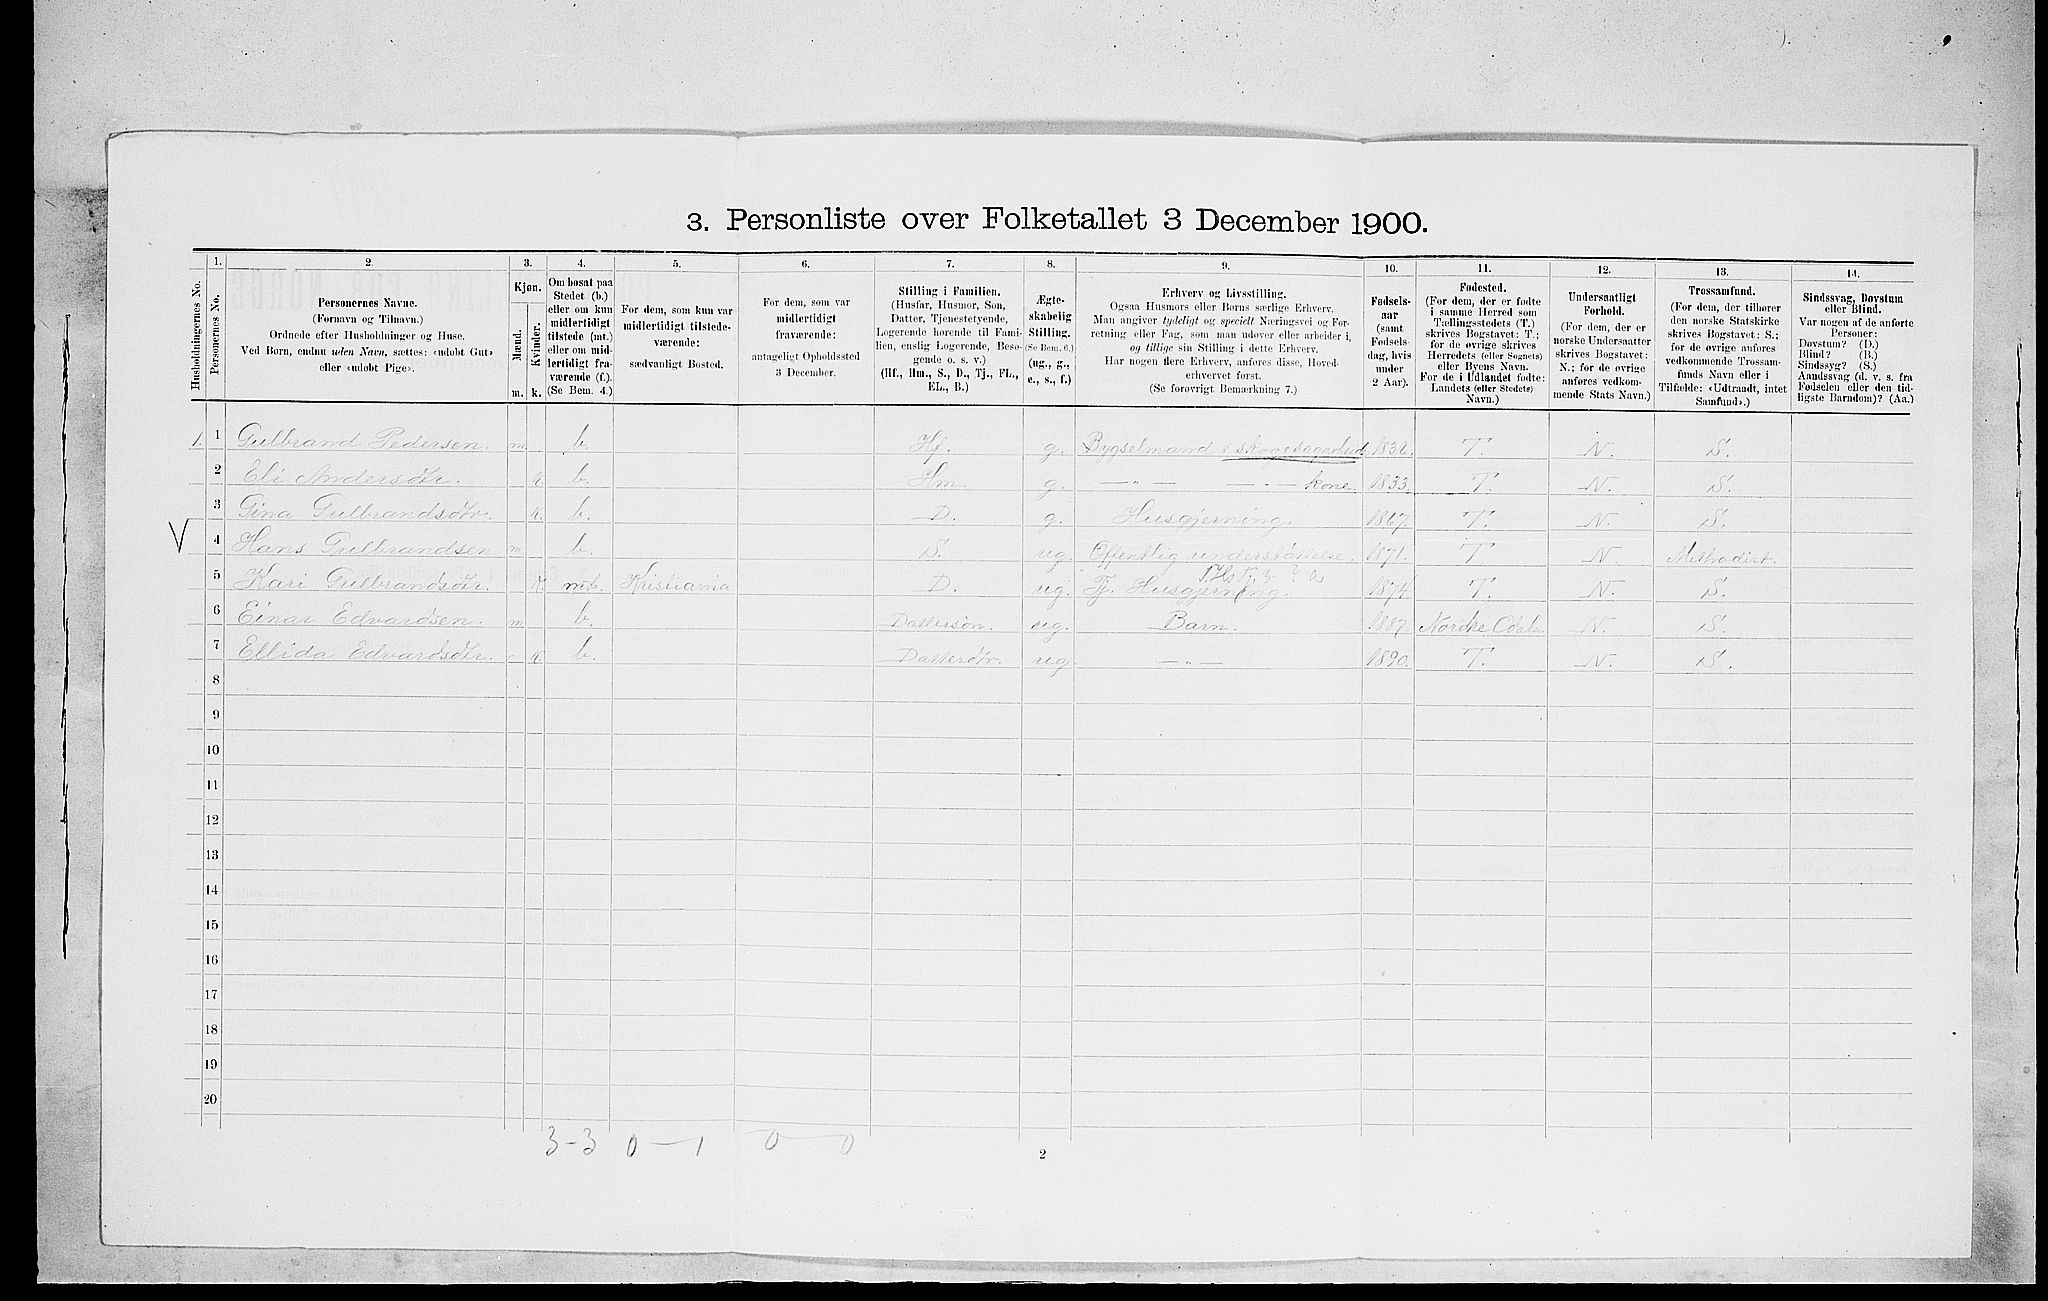 3. Personliste over Folketallet 3 December 1900.
1. 2. 3. 4. 5. 6. 7. 8. 9. 10. 11. 12. 13. 14.
Husholdningernes No.
Personernes No.
Personernes Navne.
(Fornavn og Tilnavn.)
Ordnede efter Husholdninger og Huse.
Ved Børn, endnu uden Navn, sættes: «udøbt Gut»
eller «udøbt Pige».
Kjøn.
Mænd.
Kvinder.
m. k.
Om bosat paa
Stedet (b.)
eller om kun
midlertidigt
tilstede (mt.)
eller om mid-
lertidigt fra-
værende (f.)
(Se Bem. 4.)
For dem, som kun var
midlertidigt tilstede-
værende:
sædvanligt Bosted.
For dem, som var
midlertidigt
fraværende:
antageligt Opholdssted
3 December.
Stilling i Familien.
(Husfar, Husmor, Søn,
Datter, Tjenestetyende,
Logerende hørende til Fami-
lien, enslig Logerende, Besø-
gende o. s. v.)
(Hf., Hm., S., D., Tj., FL.,
EL., B.)
Ægte-
skabelig
Stilling.
(Se Bem. 6.)
(ug., g.,
e., s., f.)
Erhverv og Livsstilling.
Ogsaa Husmors eller Børns særlige Erhverv.
Man angiver tydeligt og specielt Næringsvei og For-
retning eller Fag, som man udøver eller arbeider i,
og tillige sin Stilling i dette Erhverv.
Har nogen flere Erhverv, anføres disse, Hoved-
erhvervet først.
(Se forøvrigt Bemærkning 7.)
Fødsels-
aar
(samt
Fødsels-
dag, hvis
under
2 Aar).
Fødested.
(For dem, der er fødte
i samme Herred som
Tællingsstedets (T.)
skrives Bogstavet: T.;
for de øvrige skrives
Herredets (eller Sognets)
eller Byens Navn.
For de i Udlandet fødte:
Landets (eller Stedets)
Navn.)
Undersaatligt
Forhold.
(For dem, der er
norske Undersaatter
skrives Bogstavet:
N.; for de øvrige
anføres vedkom-
mende Stats Navn.)
Trossamfund.
(For dem, der tilhører
den norske Statskirke
skrives Bogstavet: S.;
for de øvrige anføres
vedkommende Trossam-
funds Navn eller i
Tilfælde: «Udtraadt, intet
Samfund».)
Sindssvag, Døvstum
eller Blind.
Var nogen af de anførte
Personer:
Døvstum? (D.)
Blind? (B.)
Sindssyg? (S.)
Aandssvag (d. v. s. fra
Fødselen eller den tid-
ligste Barndom)? (Aa.)
1. 1 Gulbrand Pedersen. m. b. Hf. g. Bygselmand & skogsdagarbeid. T. N. S.
2 Eli Andersdtr. k. b. Hm. g. — „ — — „ — kone. 1833. T. N. S.
3 Gina Gulbrandsdtr. k. b. D. g. Husgjerning. 1867. T. N. S.
V 4 Hans Gulbrandsen m b. S. ug. Offentlig understøttelse. 1871. T N. Methodist.
5 Kari Gulbrandsdtr. k. mt. Kristiania D. ug. Tj. Husgjerning. 1874. T. N. S.
6 Einar Edvardsen. m. b. Dattersøn. ug. Barn. 1887. Nordre Odalen N. S.
7 Ellida Edvardsdtr. k. b. Datterdtr. ug — „ — 1890. T. N. S.
8
9
10
11
12
13
14
15
16
17
18
19
20
3–3 0–1 0–0
2